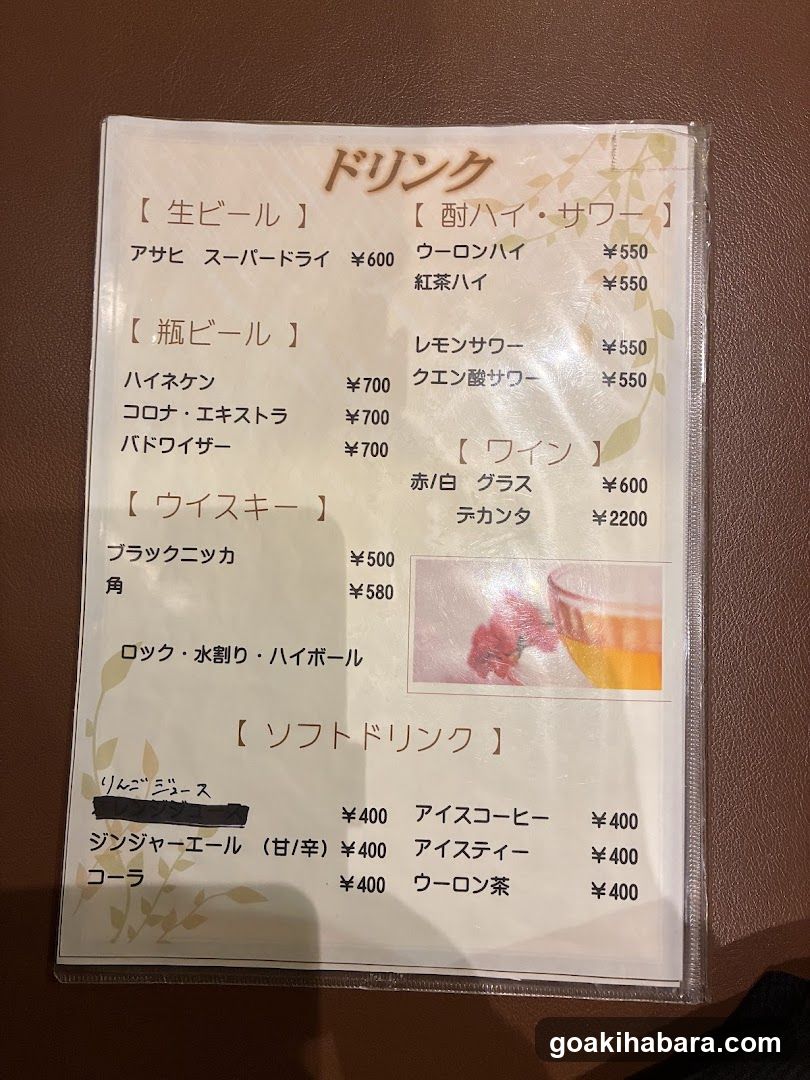 ドリンク
【 生ビール 】
アサヒ スーパードライ ¥600
【 瓶ビール 】
ハイネケン ¥700
コロナ・エキストラ ¥700
バドワイザー ¥700
【 ウイスキー 】
ブラックニッカ ¥500
角 ¥580
ロック・水割り・ハイボール
【 酎ハイ・サワー 】
ウーロンハイ ¥550
紅茶ハイ ¥550
レモンサワー ¥550
クエン酸サワー ¥550
【 ワイン 】
赤/白 グラス ¥600
デカンタ ¥2200
【 ソフトドリンク 】
りんごジュース
¥400
ジンジャーエール (甘/辛) ¥400
コーラ ¥400
アイスコーヒー ¥400
アイスティー ¥400
ウーロン茶 ¥400
goakihabara.com